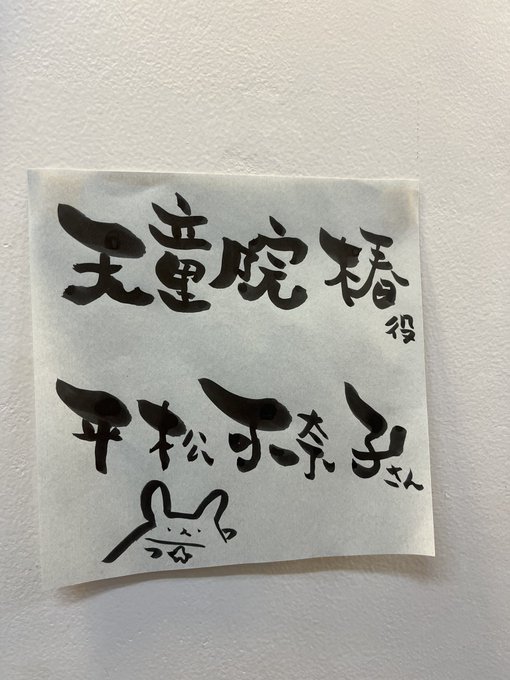 天童院椿
役
平松可奈子さん